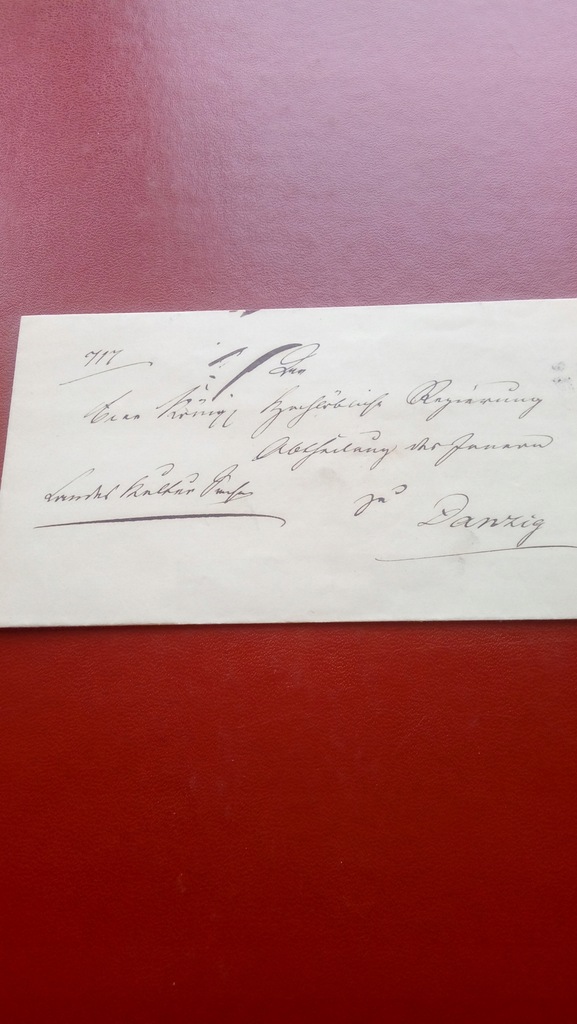 717
An
Eine Königl Hochlöbliche Regierung
Abtheilung des Innern
Landes Kultur Sache
zu
Danzig